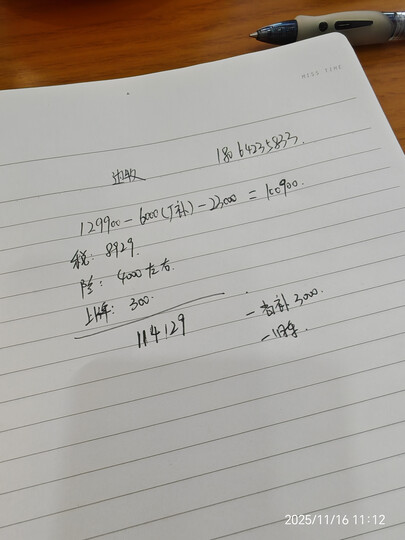 MISS TIME
18064235833.
129900-6000(厂补)-23000=100900.
税: 8929.
险: 4000左右.
上牌: 300.
114129
-省补3000.
-旧车.
2025/11/16 11:12